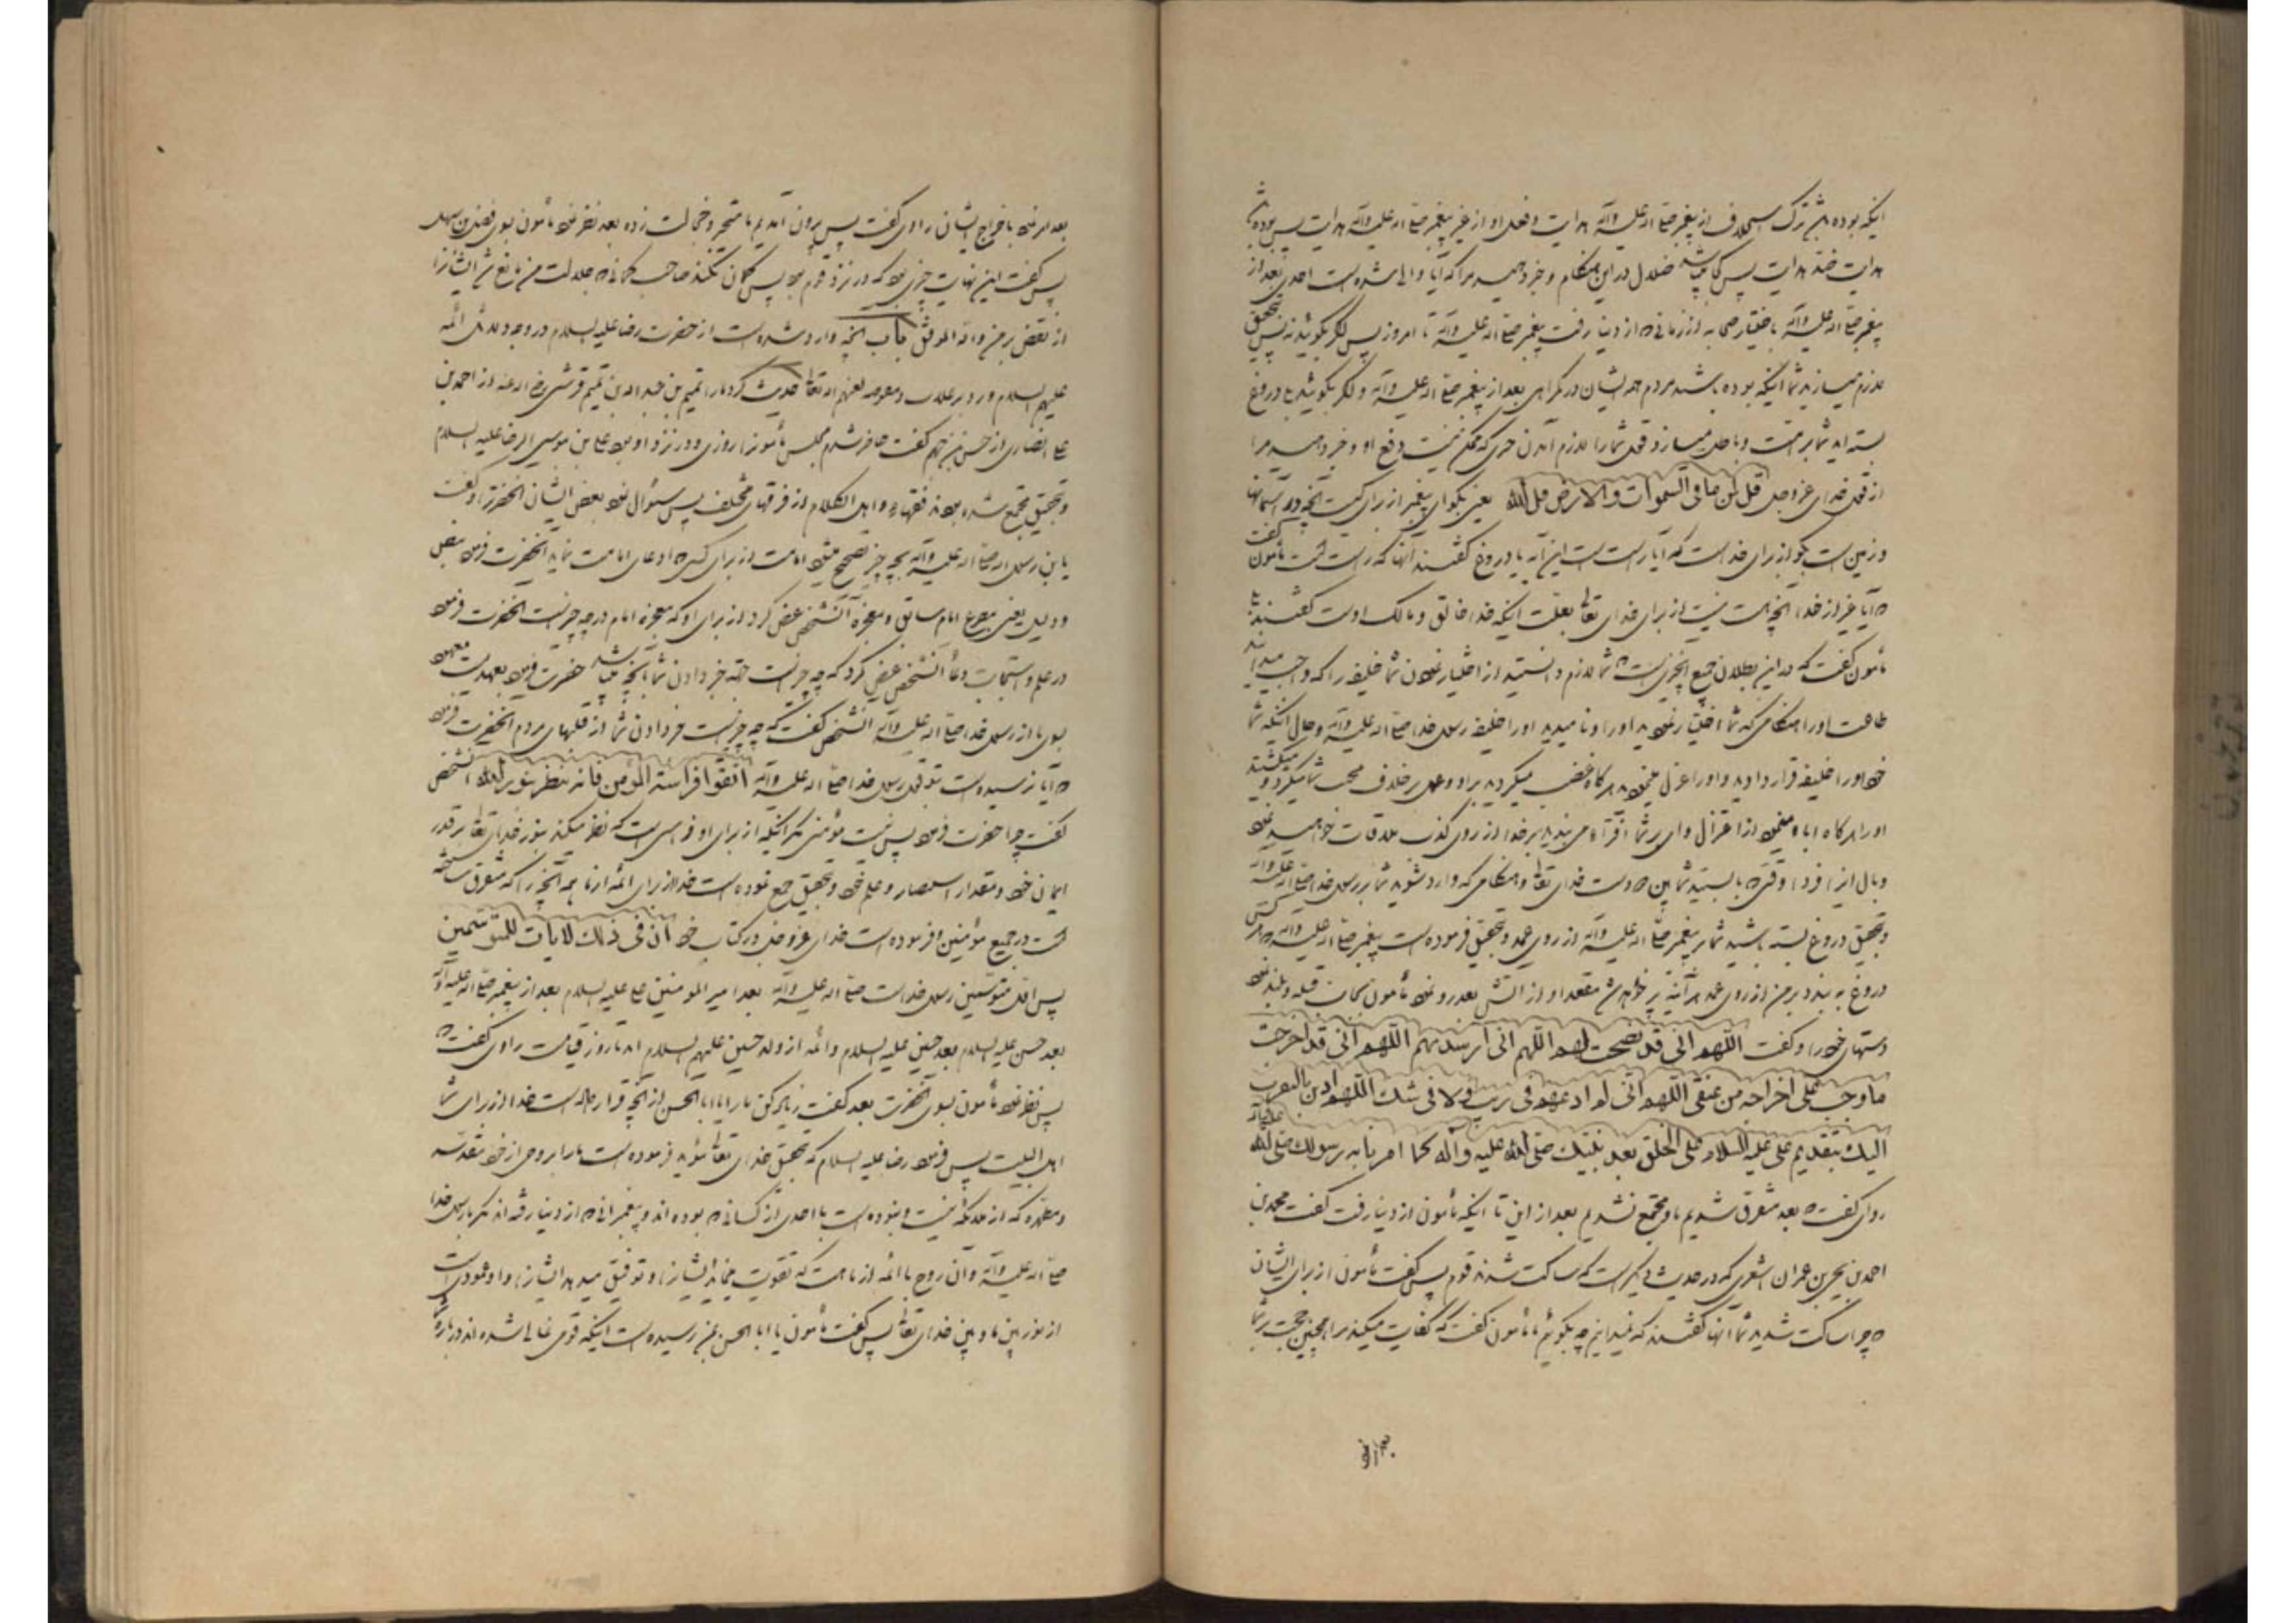 اینکه بوده باشد ترک استخلاف از پیغمبر صلی الله علیه وآله هدایت و فعل او از غیر پیغمبر صلی الله علیه وآله هدایت پس بوده باشد
هدایت ضد هدایت پس کجا میباشد ضلال در این هنگام و خبر دهید مرا که آیا والی شده است احدی بعد از
پیغمبر صلی الله علیه وآله باختیار صحابه از زمانی که از دنیا رفت پیغمبر صلی الله علیه وآله تا امروز پس اگر بگوئید نه پس بتحقیق
لازم میسازید شما اینکه بوده باشند مردم همه ایشان در گمراهی بعد از پیغمبر صلی الله علیه وآله و اگر بگوئید بلی دروغ
بسته اید شما بر امت و باطل میسازد قول شما را لازم آمدن چیزی که ممکن نیست دفع او و خبر دهید مرا
از قول خدای عزوجل قل لمن ما فی السموات والارض قل لله یعنی بگو ای پیغمبر از برای کیست آنچه در آسمانها
و زمین است بگو از برای خداست که آیا راست است این آیه یا دروغ گفتند آنها که راست است مأمون گفت
که آیا غیر از خدا آنچه هست نیست از برای خدای تعالی بعلت اینکه خدا خالق و مالک اوست گفتند بلی
مأمون گفت که در این بطلان جمیع آنچیزیست که شما لازم دانستید از اختیار نمودن شما خلیفه را که واجب میدانید
طاعت او را هنگامی که شما اختیار نمودید او را و نامیدید او را خلیفه رسول خدا صلی الله علیه وآله و حال اینکه شما
خود او را خلیفه قرار دادید و او را عزل مینمودید هرگاه غضب میکردید بر او و عمل بر خلاف محبت شما میکرد و میکشتید
او را هرگاه ابا مینمود از اعتزال وای بر شما افترا می بندید بر خدا از روی کذب ملاقات خواهید نمود
وبال این را فردا وقتی که بایستید شما بین دو دست خدای تعالی و هنگامی که وارد شوید شما بر رسول خدا صلی الله علیه وآله
و بتحقیق دروغ بسته باشید شما بر پیغمبر صلی الله علیه وآله از روی عمد و بتحقیق فرموده است پیغمبر صلی الله علیه وآله که هر کس
دروغ به بندد بر من از روی عمد هر آینه پر خواهد شد مقعد او از آتش بعد رو نمود مأمون بجانب قبله و بلند نمود
دستهای خود را و گفت اللهم انی قد نصحت لهم اللهم انی ارشدتهم اللهم انی قد اخرجت
ما وجب علی اخراجه من عنقی اللهم انی لم ادعهم فی ریب ولا فی شک اللهم ادین بالتقرب
الیک بتقدیم علی علیه السلام علی الخلق بعد نبیک صلی الله علیه وآله کما امرنا به رسولک صلی الله علیه وآله
راوی گفت که بعد متفرق شدیم ما و مجتمع نشدیم بعد از این تا اینکه مأمون از دنیا رفت گفت محمد بن
احمد بن یحیی بن عمران اشعری که در حدیث دیگر است که ساکت شدند قوم پس گفت مأمون از برای ایشان
که چرا ساکت شدید شما آنها گفتند که نمیدانیم چه بگوئیم ما مأمون گفت که کفایت میکند مرا همین حجت بر شما
بعد امر نمود
بعد امر نمود باخراج ایشان راوی گفت پس بیرون آمدیم ما متحیر و خجالت زده بعد نظر نمود مأمون بسوی فضل بن سهل
پس گفت این نهایت چیزی بود که در نزد قوم بود پس گمان نکند صاحب گمانی که جلالت من مانع شد ایشان را
از نقض بر من والله الموفق باب آنچه وارد شده است از حضرت رضا علیه السلام در وجه دلائل ائمه
علیهم السلام و رد بر غلات و مفوضه لعنهم الله تعالی حدیث کرد ما را تمیم بن عبد الله بن تمیم قرشی رضی الله عنه از احمد بن
علی انصاری از حسن بن جهم گفت حاضر شدم مجلس مأمون را روزی و در نزد او بود علی بن موسی الرضا علیه السلام
و بتحقیق مجتمع شده بودند فقهاء و اهل الکلام از فرقهای مختلف پس سؤال نمود بعض ایشان آنحضرت را و گفت
یا بن رسول الله صلی الله علیه وآله بچه چیز تصحیح میشود امامت از برای کسی که ادعای امامت نماید آنحضرت فرمود بنص
و دلیل یعنی بنص امام سابق و معجزه آنشخص عرض کرد از برای او که معجزه امام در چه چیز است آنحضرت فرمود
در علم و استجابت دعا آنشخص عرض کرد که چه چیز است جهة خبر دادن شما بآنچه میباشد حضرت فرمود بعهدیست معهود
بسوی ما از رسول خدا صلی الله علیه وآله آنشخص گفت که چه چیز است خبر دادن شما از قلبهای مردم آنحضرت فرمود
که آیا نرسیده است بتو قول رسول خدا صلی الله علیه وآله اتقوا فراسة المؤمن فانه ینظر بنور الله آنشخص
گفت چرا حضرت فرمود پس نیست مؤمنی مگر اینکه از برای او فراستی است که نظر میکند بنور خدای تعالی بر قدر
ایمان خود و مقدار استبصار و علم خود و بتحقیق جمع نموده است خدا از برای ائمه از ما همه آنچه را که متفرق ساخته
است در جمیع مؤمنین و فرموده است خدای عزوجل در کتاب خود ان فی ذلک لآیات للمتوسمین
پس اول متوسمین رسول خداست صلی الله علیه وآله بعد امیر المؤمنین علی علیه السلام بعد از پیغمبر صلی الله علیه وآله
بعد حسن علیه السلام بعد حسین علیه السلام و ائمه از ولد حسین علیهم السلام اند تا روز قیامت راوی گفت که
پس نظر نمود مأمون بسوی آنحضرت بعد گفت زیاد کن ما را یا ابا الحسن از آنچه قرار داده است خدا از برای شما
اهل البیت پس فرمود رضا علیه السلام که بتحقیق خدای تعالی مؤید فرموده است ما را بروحی از خود مقدسه
و مطهره که از ملائکه نیست و نبوده است با احدی از کسانی که بوده اند و پیغمبرانی که از دنیا رفته اند مگر با رسول خدا
صلی الله علیه وآله و آن روح با ائمه از ماست که تقویت مینماید ایشان را و توفیق میدهد ایشان را و او عمودی است
از نور بین ما و بین خدای تعالی پس گفت مأمون یا ابا الحسن بمن رسیده است اینکه قومی غالی شده اند درباره شما